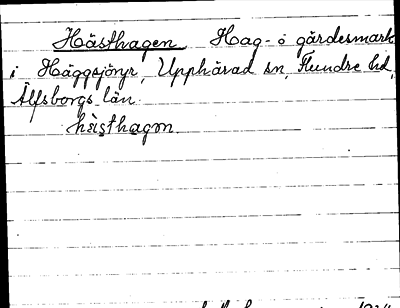 Hästhagen Hag- o gärdesmark
i Häggsjönyr, Upphärad sn, Flundre hd,
Älfsborgs län.
hästhagɘn.